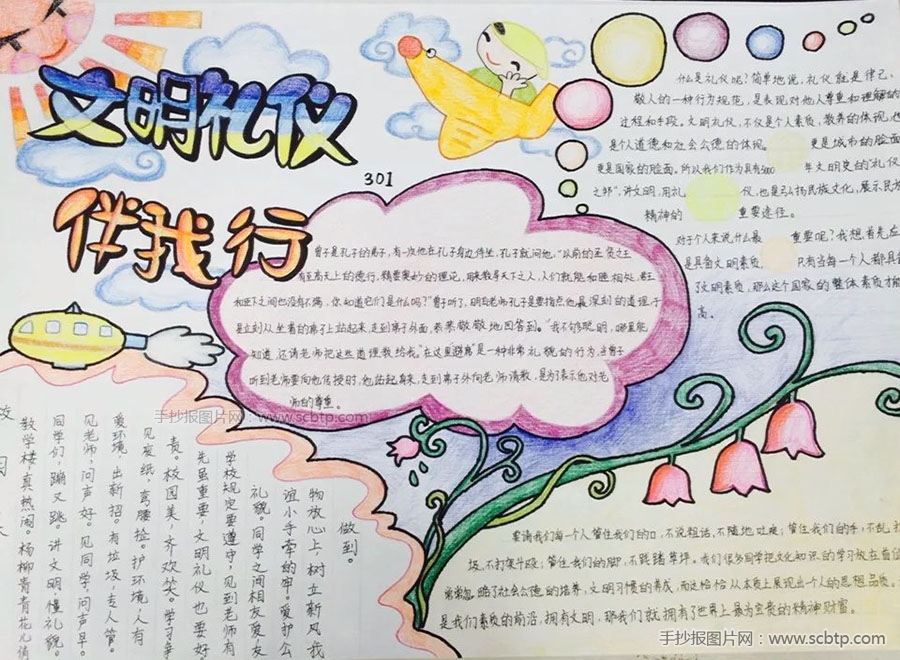 文明礼仪
伴我行
301
什么是礼仪呢?简单地说,礼仪就是律己、
敬人的一种行为规范,是表现对他人尊重和理解的
过程和手段。文明礼仪,不仅是个人素质、教养的体现,也
是个人道德和社会公德的体现。更是城市的脸面
更是国家的脸面。所以我们作为具有5000年文明史的"礼仪
之邦",讲文明,用礼仪,也是弘扬民族文化,展示民族
精神的重要途径。
对于个人来说什么最重要呢?我想,首先应
是具备文明素质,只有当每一个人都具备
了文明素质,那么这个国家的整体素质才能
高。
曾子是孔子的弟子,有一次他在孔子身边侍坐,孔子就问他:"以前的圣贤之王
有至高无上的德行,精要奥妙的理论,用来教导天下之人,人们就能和睦相处,君王
和臣下之间也没有不满,你知道它们是什么吗?"曾子听了,明白老师孔子是要指点他最深刻的道理,于
是立刻从坐着的席子上站起来,走到席子外面,恭恭敬敬地回答到。"我不够聪明,哪里能
知道,还请老师把这些道理教给我。"在这里"避席"是一种非常礼貌的行为,当曾子
听到老师要向他传授时,他站起身来,走到席子外向老师请教,是为了表示他对老
师的尊重。
手抄报图片网:www.scbtp.com
校园
教学楼,真热闹。杨柳青青花儿俏
同学们,蹦又跳。讲文明懂礼貌。
见老师,问声好。见同学,问声早。
爱环境,出新招。有垃圾,专人管。
见废纸,弯腰捡。护环境,人有
责。校园美,齐欢笑。学习
先虽重要,文明礼仪也要好
学校规定要遵守,见到老师有
礼貌。同学之间相友爱,友
谊小手牵的牢。爱护公
物放心上,树立新风我
做到。
要请我们每一个人管住我们的口,不说粗话、不随地吐痰;管住我们的手,不乱扔
圾、不打架斗殴;管住我们的脚,不践踏草坪。我们很多同学把文化知识的学习放在首位
常常忽略了社会公德的培养,文明习惯的养成,而这恰恰从本质上展现出一个人的思想品质。
是我们素质的前沿,拥有文明,那我们就拥有了世界上最为宝贵的精神财富。
手抄报图片网:www.scbtp.com